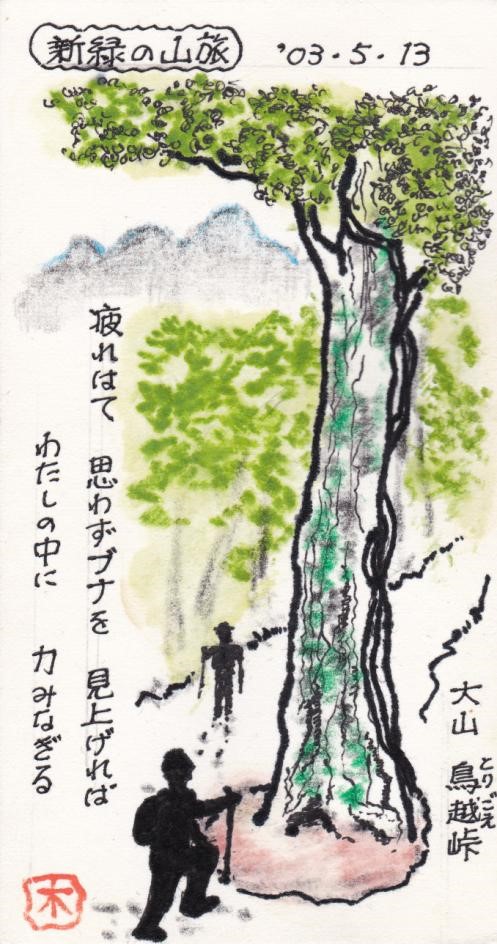 新緑の山旅
'03.5.13
疲れはて 思わずブナを 見上げれば
わたしの中に 力みなぎる
大山 鳥越峠
とりごえ